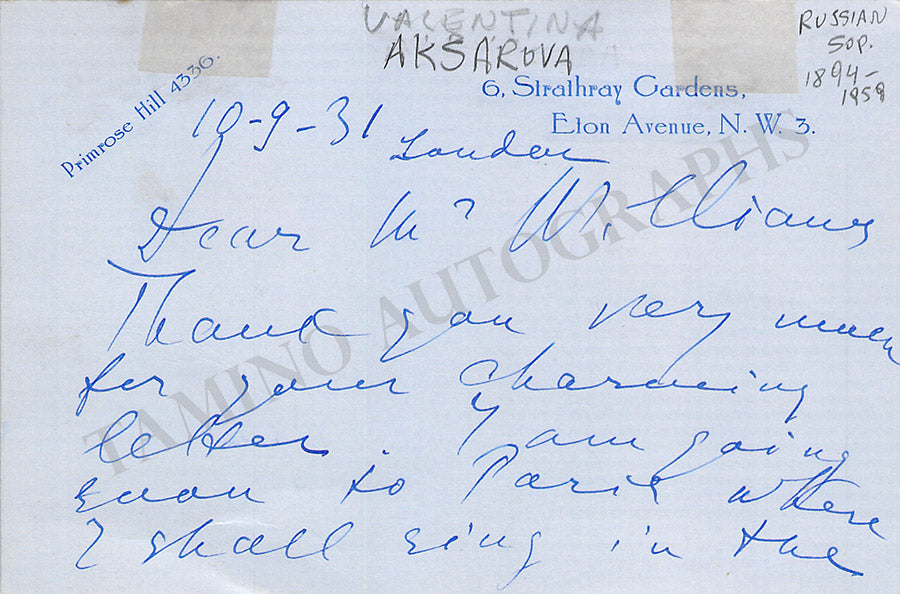 VALENTINA
AKSAROVA
RUSSIAN
SOP.
1894-
1959
Primrose Hill 4336.
6, Strathray Gardens,
Eton Avenue, N. W. 3.
19-9-31
London
Dear Mr Williams
Thank you very much
for your charming
letter. I am going
soon to Paris where
I shall sing in the
TAMINO AUTOGRAPHS